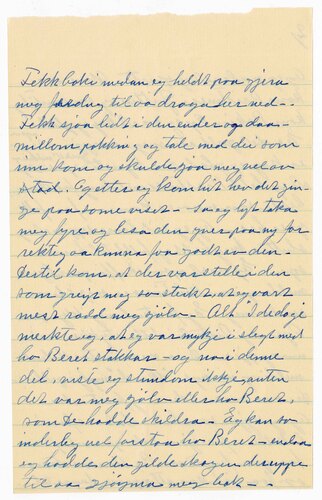 Fikk boki medan eg heldt paa gjera
meg ferdug til aa draga her ned –
Fekk sjaa lidt i den under og daa –
millom pakking og tale med dei som
inn kom og skulde sjaa meg vel av
stad. Og etter eg kom hit hev det gin-
ge paa same viset – Saa eg lyt taka
meg fyre og lesa den yver paa ny for
rektig aa kunna faa godt av den –
Dertil kom, at der var stille i den
som greip meg so sterkt, at eg vart
mest rædd meg sjølv – Alt i dedaje
merkte eg, at eg var mykje i slegt med
ho Beret stakkar – og no i denne
del, viste eg stundom ikkje anten
det var meg sjølv eller ho Beret,
som De hadde skildra – Eg kan so
inderleg vel forstaa ho Beret – endaa
eg hadde den gilde skogen der uppe
til aa gjøyma meg bak – –